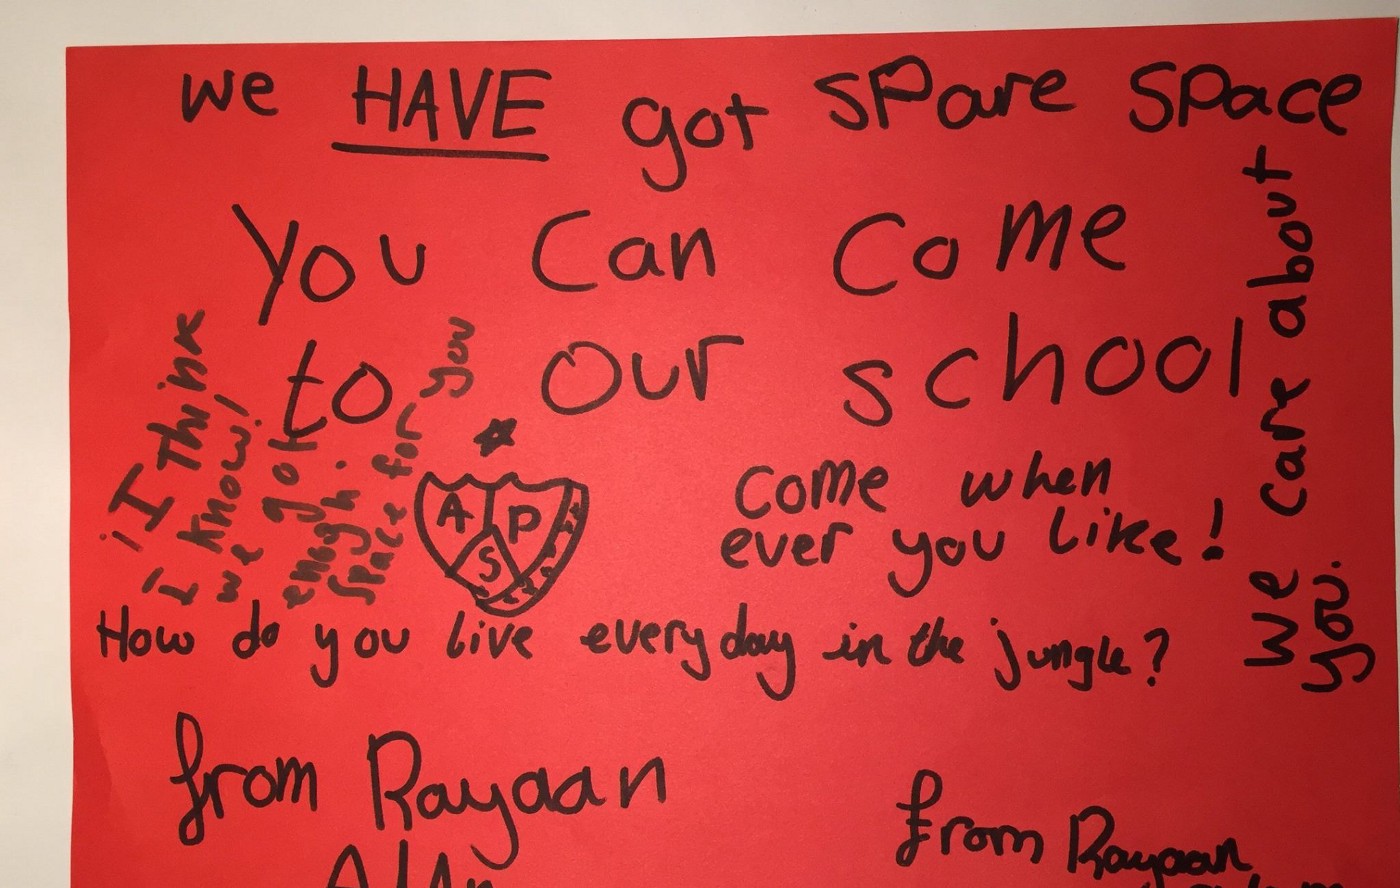 we HAVE got spare space
You can come
to our school
¡I Think
I know!
we got
enough.
space for you
A P
S
come when
ever you like!
we care about
you.
How do you live everyday in the jungle?
from Rayaan
from Rayaan